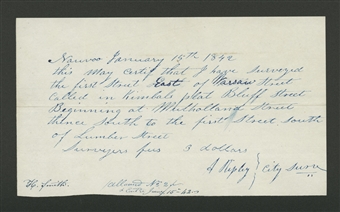 Nauvoo January 15th 1842
this may certif that I have surveyed
the first Street East of Warsaw Street
called in Kimbals plat Bluff Street
Beginning at Mulholland Street
thence south to the first Street south
of Lumber Street
Surveyers fees 3 dollars
A Ripley } City Surv
H. Smith.
allowed
Jany 15 - 42